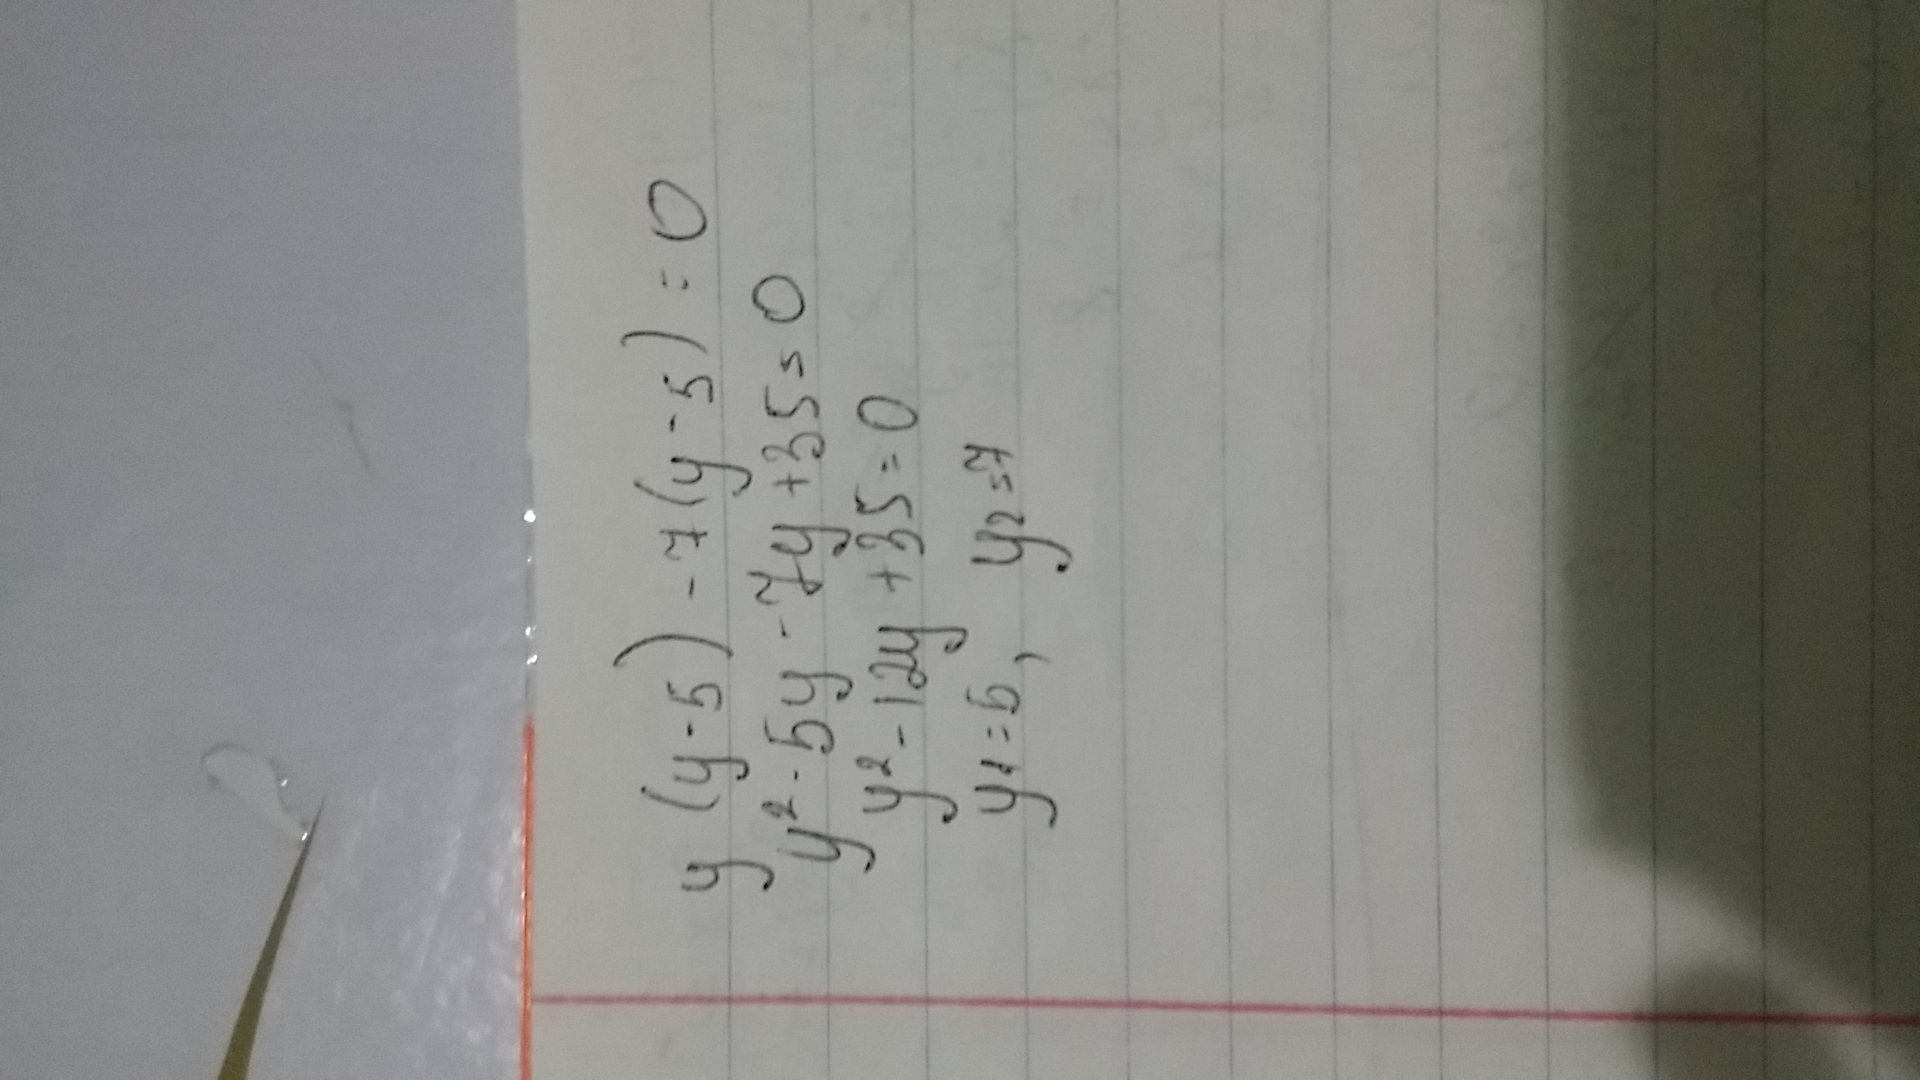 y (y-5) -7(y-5) = 0
y²-5y-7y+35=0
y²-12y+35=0
y₁=5, y₂=7